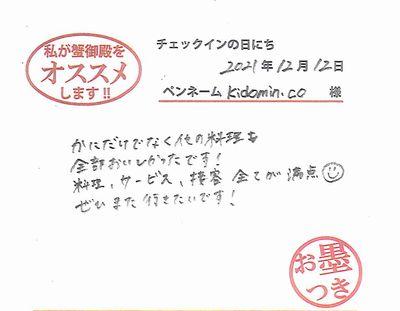 私が蟹御殿を
オススメ
します!!
チェックインの日にち
2021年12月12日
ペンネーム kidomin.co 様
かにだけでなく他の料理も
全部おいしかったです！
料理、サービス、接客 全てが満点
ぜひまた行きたいです！
お墨
つき